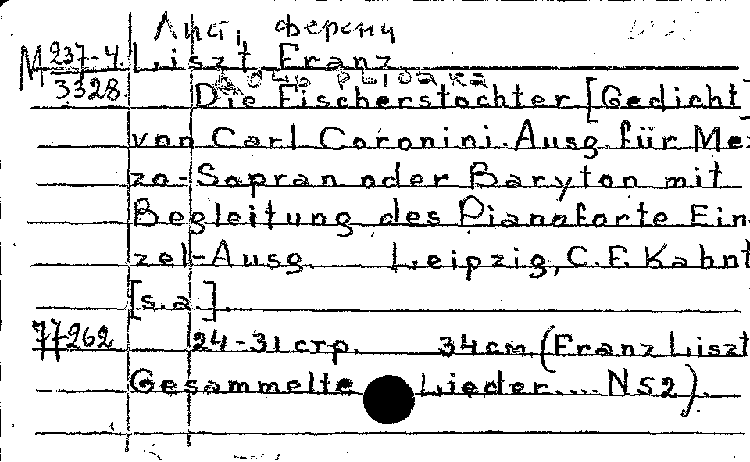 Лист, Ференц
M 237-4 Liszt Franz
3328 Die Fischerstochter [Gedicht
von Carl Coronini. Ausg. für Mez
zo-Sopran oder Baryton mit
Begleitung des Pianoforte Ein
zel-Ausg. Leipzig, C.F. Kahnt
[s.a.].
77-262 24-31 стр. 34 cm. (Franz Liszt
Gesammelte Lieder.... N52).